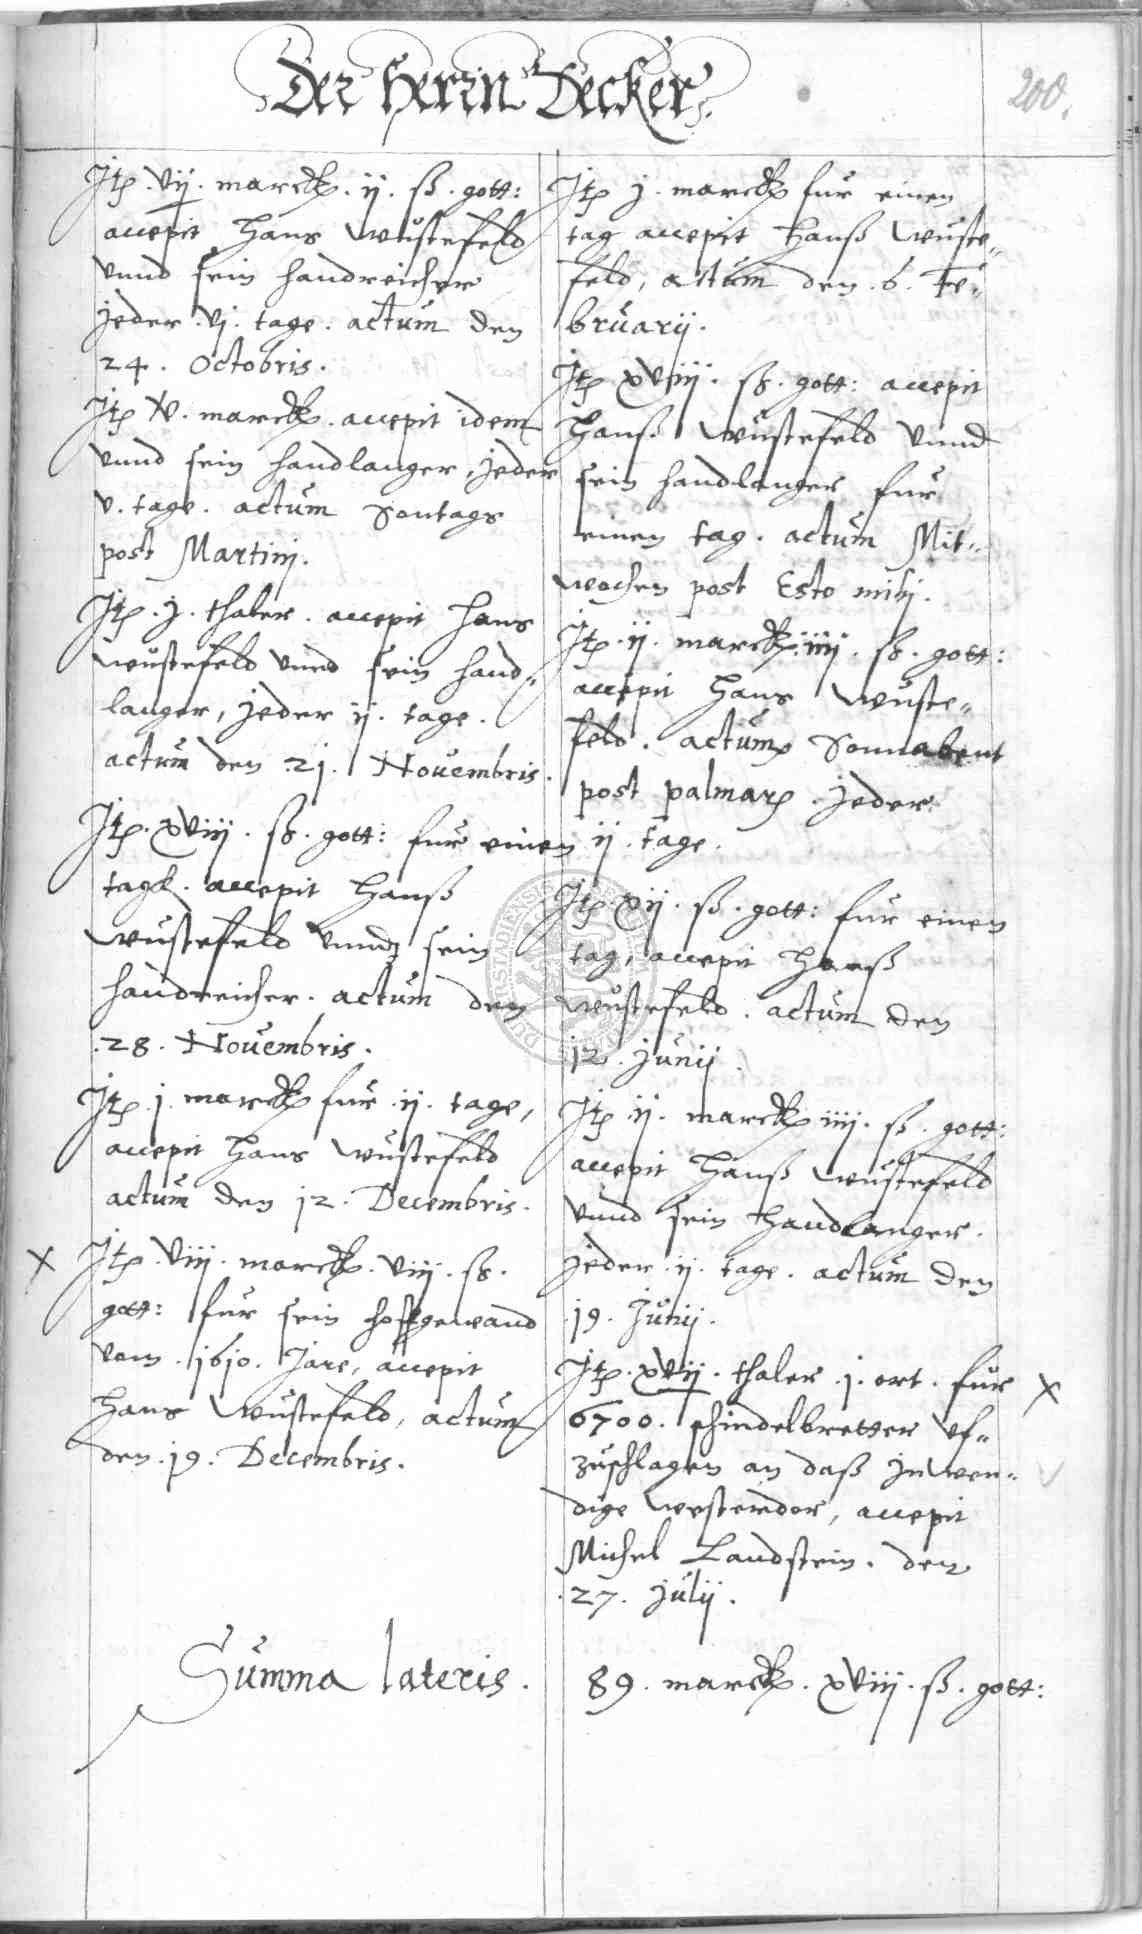 Der Herrn Decker.
200.
Jtē. vij. marck. ij. ß. gott:
accepit Hans Wustefeld
vnnd sein handreicher
jeder. vj. tage. actum den
24. Octobris.
Jtē v. marck. accepit idem
vnnd sein handlanger, jeder
v. tage. actum Sontags
post Martinj.
Jtē. j. thaler. accepit Hans
Wustefeld vnnd sein hand„
langer, jeder ij. tage.
actum den 21. Nouembris.
Jtē. xviij. ß. gott: fur einen
tagk. accepit Hanß
Wustefeld vnnd sein
handreicher. actum den
.28. Nouembris.
Jtē. j. marck fur ij. tage,
accepit Hans Wustefeld
actum den 12. Decembris.
x Jtē. viij. marck. viij. ß.
gott: fur sein hoffgewand
vom. 1610. Jare, accepit
Hans Wustefeld, actum
den. 19. Decembris.
Jtē j. marck fur einen
tag accepit Hanß Wuste„
feld, actum den. 6. Fe„
bruarij.
Jtē xviij. ß. gott: accepit
Hanß Wustefeld vnnd
sein handlanger fur
einen tag. actum Mit„
wochen post Esto mihj.
Jtē. ij. marck. iiij. ß. gott:
accepit Hans Wuste„
feld. actum Sonnabent
post palmarū. jeder
ij. tage.
Jtē. xij. ß. gott: fur einen
tag, accepit Hanß
Wustefeld. actum den
12. Junij.
Jtē ij. marck iiij. ß. gott:
accepit Hanß Wustefeld
vnnd sein Handlanger.
jeder. ij. tage. actum den
.19. Junij.
Jtē. xvij. thaler. j. ort. fur x
6700. schindelbretter vf„
zuschlagen an daß jnwen„
dige westerdor, accepit
Michel Landstein. den
.27. Julij.
Summa lateris. 89. marck. xviij. ß. gott: